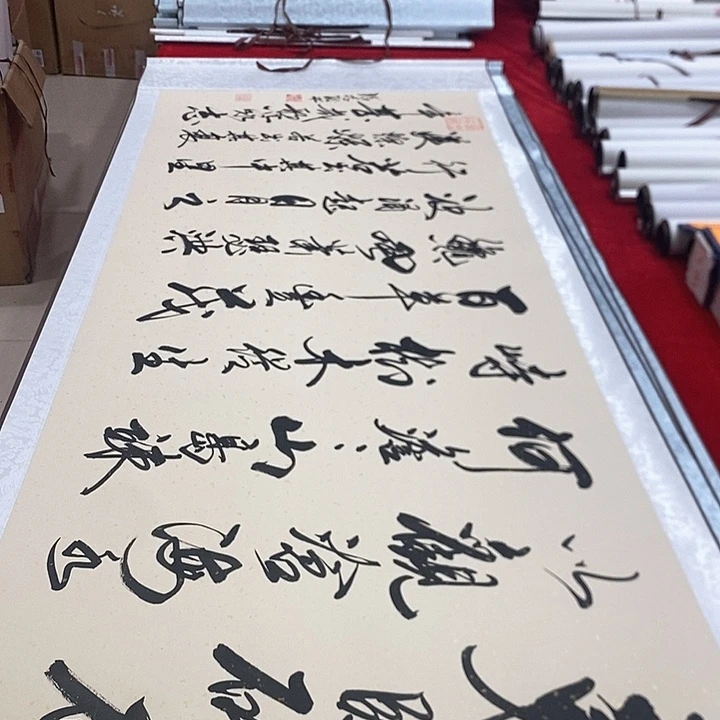 東臨碣石
以觀滄海水
何澹〻山島竦
峙樹木叢生
百草豐茂
秋風蕭瑟洪
波涌起日月之
行若出其中星
漢燦爛若出其裏
幸甚至哉歌以詠志